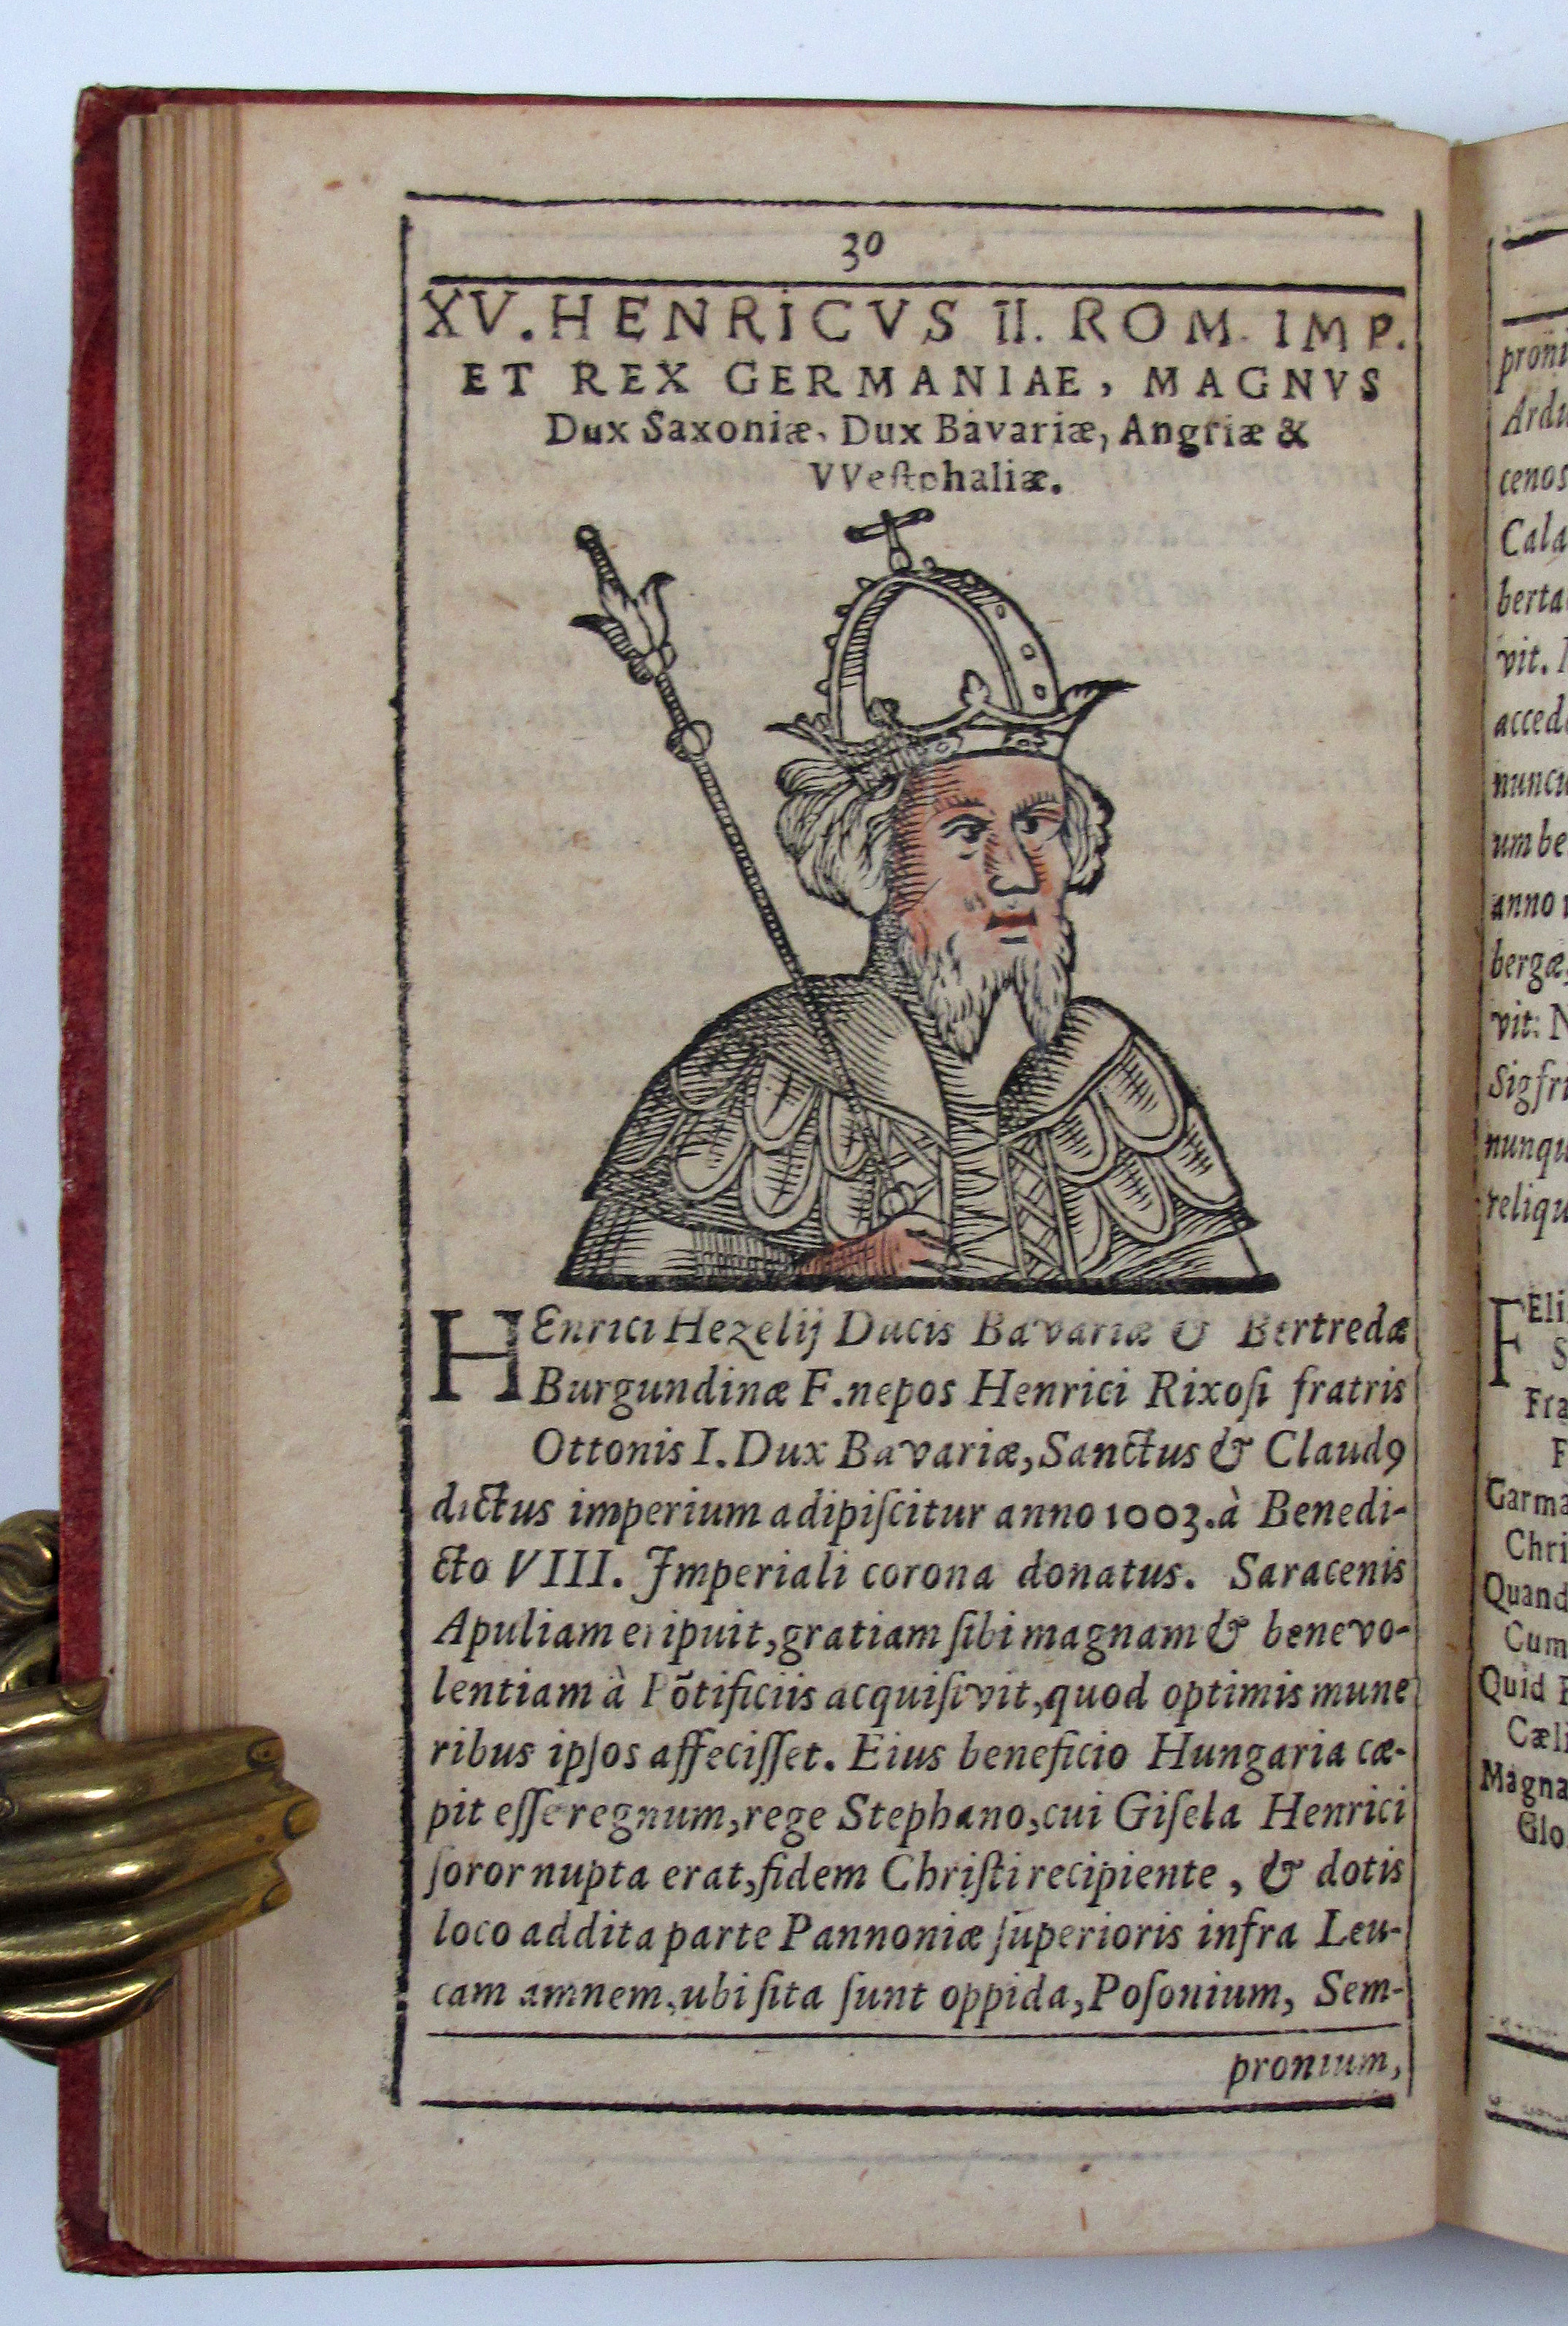 30
XV. HENRICVS II. ROM. IMP.
ET REX GERMANIAE, MAGNVS
Dux Saxoniæ, Dux Bavariæ, Angriæ &
VVeſtphaliæ.
HEnrici Hezelij Ducis Bavariæ & Bertredæ
Burgundinæ F. nepos Henrici Rixoſi fratris
Ottonis I. Dux Bavariæ, Sanctus & Claudꝰ
dictus imperium adipiſcitur anno 1003. à Benedi-
cto VIII. Imperiali corona donatus. Saracenis
Apuliam eripuit, gratiam ſibi magnam & benevo-
lentiam à Põtificiis acquiſivit, quod optimis mune
ribus ipſos affeciſſet. Eius beneficio Hungaria cæ-
pit eſſe regnum, rege Stephano, cui Giſela Henrici
ſoror nupta erat, fidem Chriſti recipiente, & dotis
loco addita parte Pannoniæ ſuperioris infra Leu-
cam amnem, ubi ſita ſunt oppida, Poſonium, Sem-
pronium,
proni
Ardu
cenos
Cala
berta
vit.
acced
nuncu
um be
anno
bergæ
vit: N
Sigfri
nunqu
reliqu
FEli
S
Fra
F
Garma
Chri
Quand
Cum
Quid
Cæli
Magna
Glo